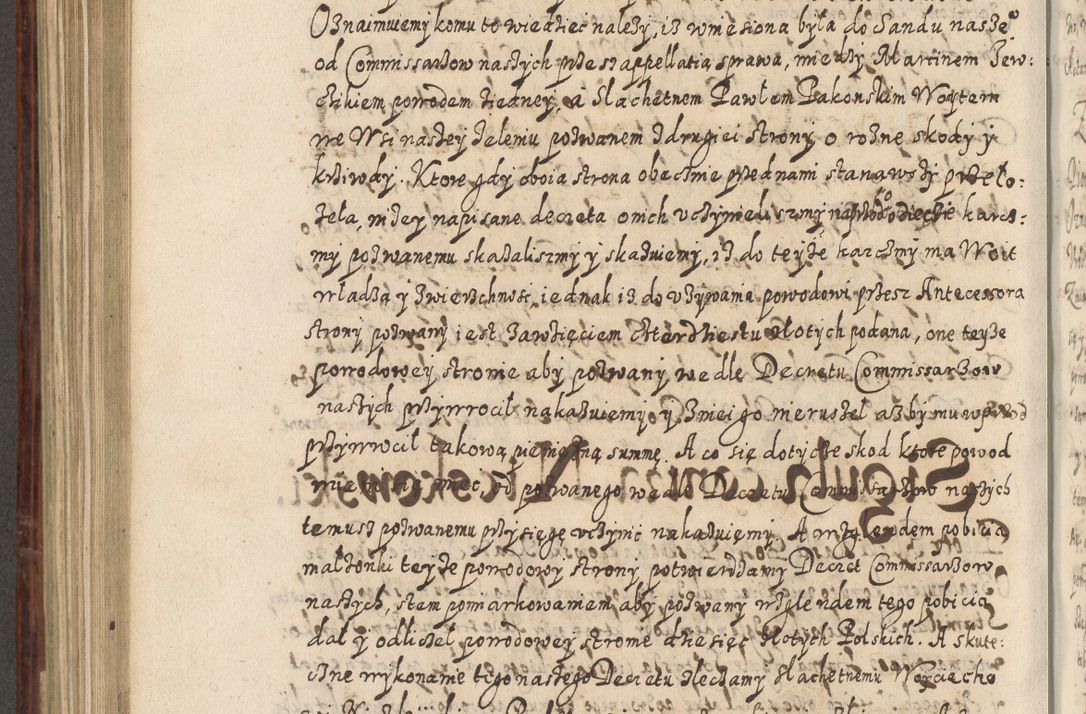 Oznaimuiemy komu to wiedziec nalezy, iz wniesiona była do Sandu naszeo
od Commissarzow naszych przesz appellatią sprawa, miedzy Marcinem Szew:
czikiem powodem ziedney, a Slachetnem Pawłem Pakonskim Woytem
we Wsi naszey Zeleniu pozwanem z drugiei strony o rozne skody y
krziwdy. Ktore gdy oboia strona obecznie przed nami stanąwszy przeło:
zela, nizey napisane decreta o nich uczynieli szmy naprzod odięcie karcz:
my pozwanemu skazaliszmy y skazuiemy, iz do teyze karczmy ma Woit
władzą y zwierzchnosc, iednak iz do uzywania powodowi przesz Antecessora
strony pozwany iest zawzięciem czterdziestu złotych podana, one teyze
powodowey stronie aby pozwany wedle Decretu Commissarzow
naszych przywrocił nakazuiemy y zniei go nie ruszel az by mu wprzod
przywrocił takową pieniezną summę. A co się dotycze skod ktore powod
mieni ... miec, od pozwanego wedle Decretu Commissarzow naszych
temusz pozwanemu przysięgę uczynić nakazuiemy. A względem pobicia
małzonki teyze powodowy strony potwierdzamy Decret Commissarzow
naszych, stam pomiarkowaniem aby pozwany względem tego pobicia
dał y odliczel powodowey stronie dziesięć złotych Polskich. A skute:
czne wykonanie tego naszego Decretu zleczamy Slachetnemu Woyciecho